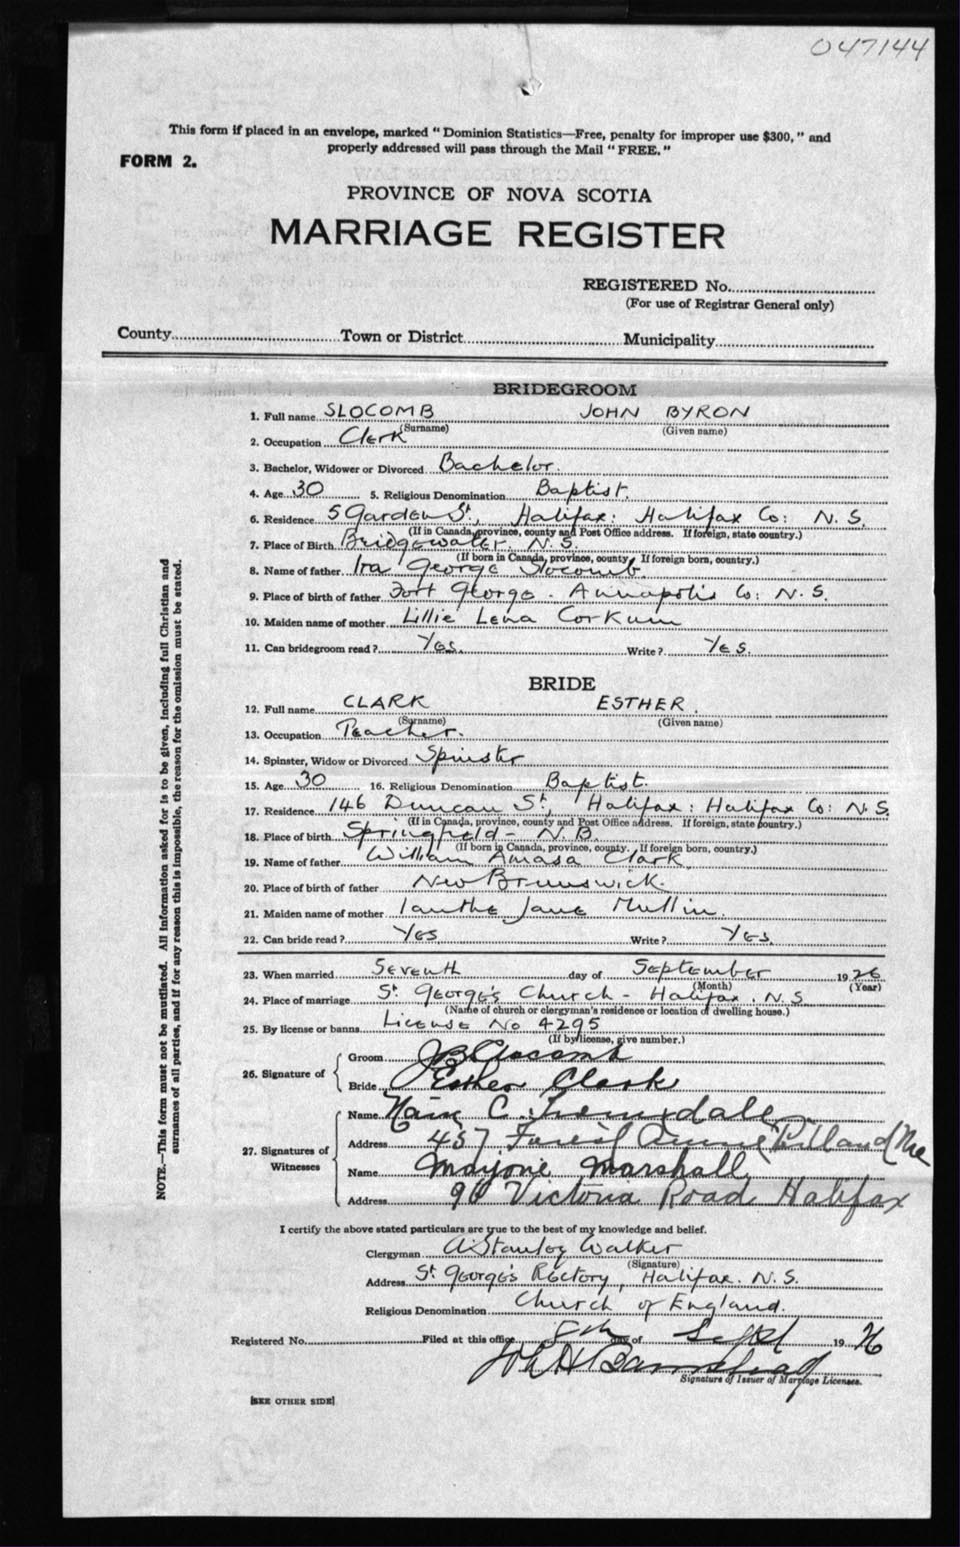 047144
This form if placed in an envelope, marked "Dominion Statistics—Free, penalty for improper use $300," and
properly addressed will pass through the Mail "FREE."
FORM 2.
PROVINCE OF NOVA SCOTIA
MARRIAGE REGISTER
REGISTERED No.
(For use of Registrar General only)
County Town or District Municipality
BRIDEGROOM
1. Full name SLOCOMB JOHN BYRON
(Surname) (Given name)
2. Occupation Clerk
3. Bachelor, Widower or Divorced Bachelor.
4. Age 30 5. Religious Denomination Baptist.
6. Residence 5 Garden St, Halifax: Halifax Co: N.S.
(If in Canada, province, county and Post Office address. If foreign, state country.)
7. Place of Birth Bridgewater. N.S.
(If born in Canada, province, county. If foreign born, country.)
8. Name of father Ira George Slocomb
9. Place of birth of father Fort George - Annapolis Co: N.S.
10. Maiden name of mother Lillie Lena Corkum
11. Can bridegroom read? Yes. Write? Yes.
BRIDE
12. Full name CLARK ESTHER.
(Surname) (Given name)
13. Occupation Teacher.
14. Spinster, Widow or Divorced Spinster
15. Age 30 16. Religious Denomination Baptist.
17. Residence 146 Duncan St, Halifax: Halifax Co: N.S.
(If in Canada, province, county and Post Office address. If foreign, state country.)
18. Place of birth Springfield - N.B.
(If born in Canada, province, county. If foreign born, country.)
19. Name of father William Amasa Clark
20. Place of birth of father New Brunswick.
21. Maiden name of mother Ianthe Jane Mullin.
22. Can bride read? Yes Write? Yes.
23. When married Seventh day of September 1926
(Month) (Year)
24. Place of marriage St George's Church - Halifax. N.S
(Name of church or clergyman's residence or location of dwelling house.)
25. By license or banns License No 4295
(If by license, give number.)
26. Signature of
Groom J B Slocomb
Bride Esther Clark
27. Signatures of Witnesses
Name C.
Address 457 Forest Avenue Portland Me
Name Marjorie Marshall
Address 90 Victoria Road Halifax
I certify the above stated particulars are true to the best of my knowledge and belief.
Clergyman A Stanley Walker
(Signature)
Address St George's Rectory, Halifax. N.S.
Religious Denomination Church of England.
Registered No. Filed at this office 8th day of Sept 1926
Signature of Issuer of Marriage Licenses.
[SEE OTHER SIDE]
NOTE.—This form must not be mutilated. All information asked for is to be given, including full Christian and
surnames of all parties, and if for any reason this is impossible, the reason for the omission must be stated.